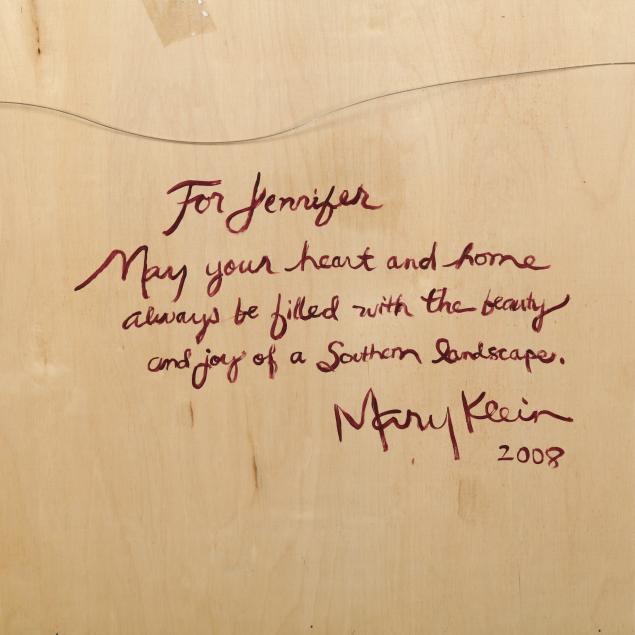 For Jennifer
May your heart and home
always be filled with the beauty
and joy of a Southern landscape.
Mary Klein
2008